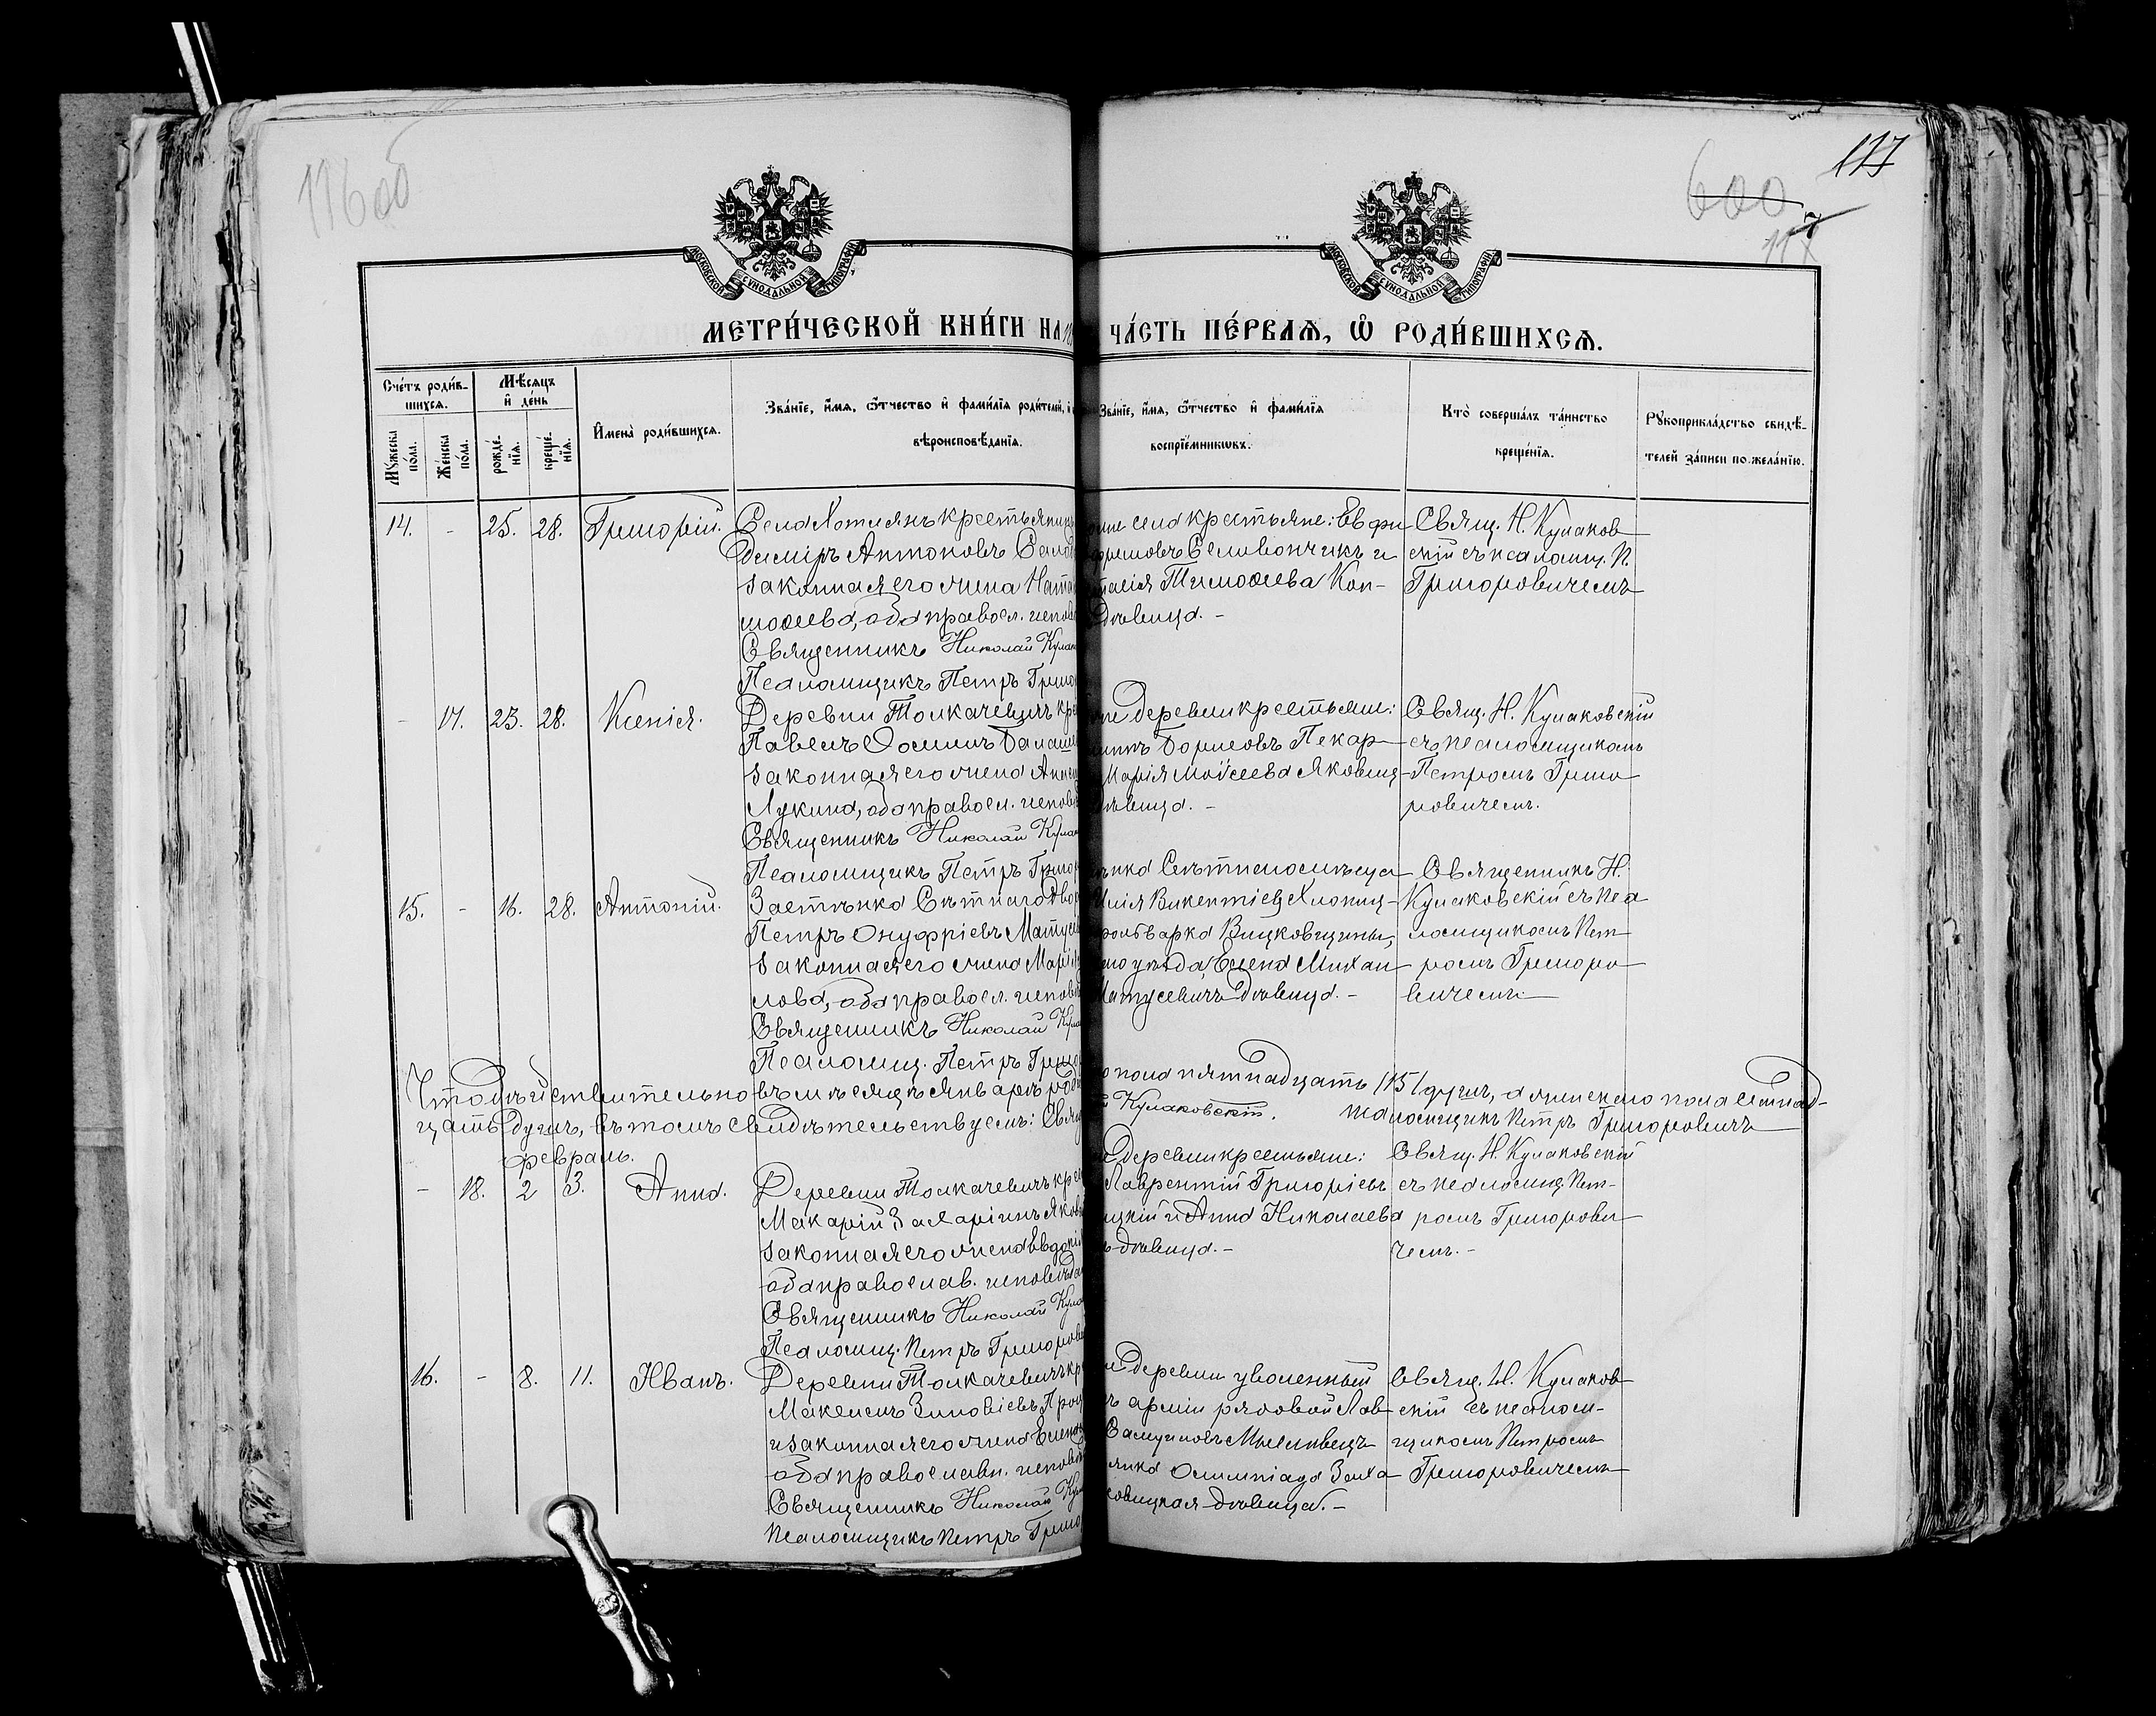 116 об
600
117
117
МОСКОВСКОЙ СѴНОДАЛЬНОЙ ТИПОГРАФІИ
МОСКОВСКОЙ СѴНОДАЛЬНОЙ ТИПОГРАФІИ
МЕТРИ́ЧЕСКОЙ КНИ́ГИ НА 18
ЧА́СТЬ ПЕ́РВАѦ, Ѡ РОДИ́ВШИХСѦ.
Сче́тъ роди́в-
шихсѧ.
Мѣсяцъ
и҆ де́нь
Мꙋжеска
по́ла.
Же́нска
по́ла.
рожде́-
нїѧ.
креще́-
нїѧ.
И҆мена̀ роди́вшихсѧ.
Зва́нїе, и҆́мѧ, ѻ҆́тчество и҆ фами́лїѧ роди́телей, и҆
вѣроисповѣ́данїѧ.
Зва́нїе, и҆́мѧ, ѻ҆́тчество и҆ фами́лїѧ
воспрїе́мникѡвъ.
Кто̀ соверша́лъ та́инство
креще́нїѧ.
Рꙋкоприкла́дство свидѣ́-
телей за́писи по жела́нїю.
14. - 25. 28. Григорій.
Села Хотлянъ крестьянинъ
димiръ Антоновъ Сели
законная его жена Ната
мооеева, оба правосл. испов
Священникъ Николай Кулак
Псаломщикъ Петръ Григо
села крестьяне: Евфи
Селивончикъ и
Тимоѳеева Коп-
дѣвица. -
Свящ. Н. Кулаков
скій съ псаломщ. П.
Григоровичемъ
- 17. 23. 28. Ксенія.
Деревни Толкачевичъ кре
Павелъ Ѳоминъ Балаш
законная его жена
Лукина, оба правосл. испов
Священникъ Николай Кулак
Псаломщикъ Петръ Григо
деревни крестьяне:
Борисовъ Пекар
Марія Моисеева Яковиц-
дѣвица. -
Свящ. Н. Кулаковскій
съ псаломщикомъ
Петромъ Григо
ровичемъ.
15. - 16. 28. Антоній.
Застѣнка Сѣтнаго двор
Петръ Онуфріевъ Матус
законная его жена Марія
лова, оба правосл. испов
Священникъ Николай Кула
Псаломщ. Петръ Григо
Илія Викентіевъ Хлопиц-
фольварка Вицковщины,
уѣзда, Елена Михаи
Матусевичъ дѣвица. -
Священникъ Н.
Кулаковскій съ пса
ломщикомъ Пет
ромъ Григоро
вичемъ
Что дѣйствительно въ мѣсяцѣ Январѣ роди
пола пятнадцать /15/ душъ, а женскаго пола семнад-
цать душъ, въ томъ свидѣтельствуемъ: Свящ
Кулаковскій. Псаломщикъ Петръ Григоровичъ
Февраль.
- 18. 2 3. Анна.
Деревни Толкачевичъ кре
Макарій Захаріинъ Яков
законная его жена Евдокі
оба православ. исповѣда
Священникъ Николай Кула
Псаломщ. Петръ Григоров
деревни крестьяне:
Лаврентій Григоріевъ
цкій и Анна Николаева
дѣвица. -
Свящ. Н. Кулаковскій
съ псаломщ. Пет-
ромъ Григорови
чемъ. -
16. - 8. 11. Иванъ.
Деревни Толкачевичъ кр
Максимъ Зиновіевъ
и законная его жена Елена
оба православн. исповѣ
Священникъ Николай Кул
Псаломщикъ Петръ Григо
деревни уволенный
арміи рядовой Лав
Мысливецъ
Олимпіада Заха
ковицкая дѣвица. -
Свящ. Н. Кулаков
скій съ псалом-
щикомъ Петромъ
Григоровичемъ